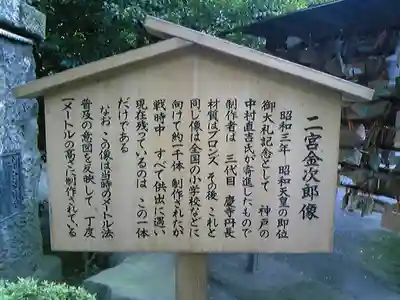 二宮金次郎像
昭和三年 昭和天皇の即位
御大礼記念として 神戸の
中村直吉氏が寄進したもので
制作者は 三代目 慶寺丹長
材質はブロンズ その後 これと
同じ像は全国の小学校などに
向けて約一千体 制作されたが
戦時中 すべて供出に遭い
現在残っているのは この一体
だけである
なお この像は当時のメートル法
普及の意図を反映して 丁度
一メートルの高さに制作されている